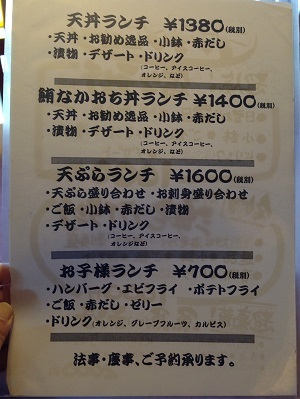 天丼ランチ ¥1380(税別)
・天丼・お勧め逸品・小鉢・赤だし
・漬物・デザート・ドリンク
(コーヒー、アイスコーヒー、
オレンジ、など)
鮪なかおち丼ランチ ¥1400(税別)
・天丼・お勧め逸品・小鉢・赤だし
・漬物・デザート・ドリンク
(コーヒー、アイスコーヒー、
オレンジ、など)
天ぷらランチ ¥1600(税別)
・天ぷら盛り合わせ・お刺身盛り合わせ
・ご飯・小鉢・赤だし・漬物
・デザート・ドリンク
(コーヒー、アイスコーヒー、
オレンジなど)
お子様ランチ ¥700(税別)
・ハンバーグ・エビフライ・ポテトフライ
・ご飯・赤だし・ゼリー
・ドリンク(オレンジ、グレープフルーツ、カルピス)
法事・慶事、ご予約承ります。